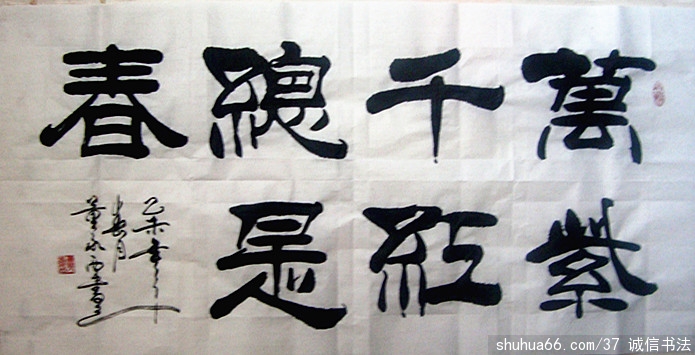 萬紫
千紅
總是
春
乙未年
春月
shuhua66.com/37 诚信书法